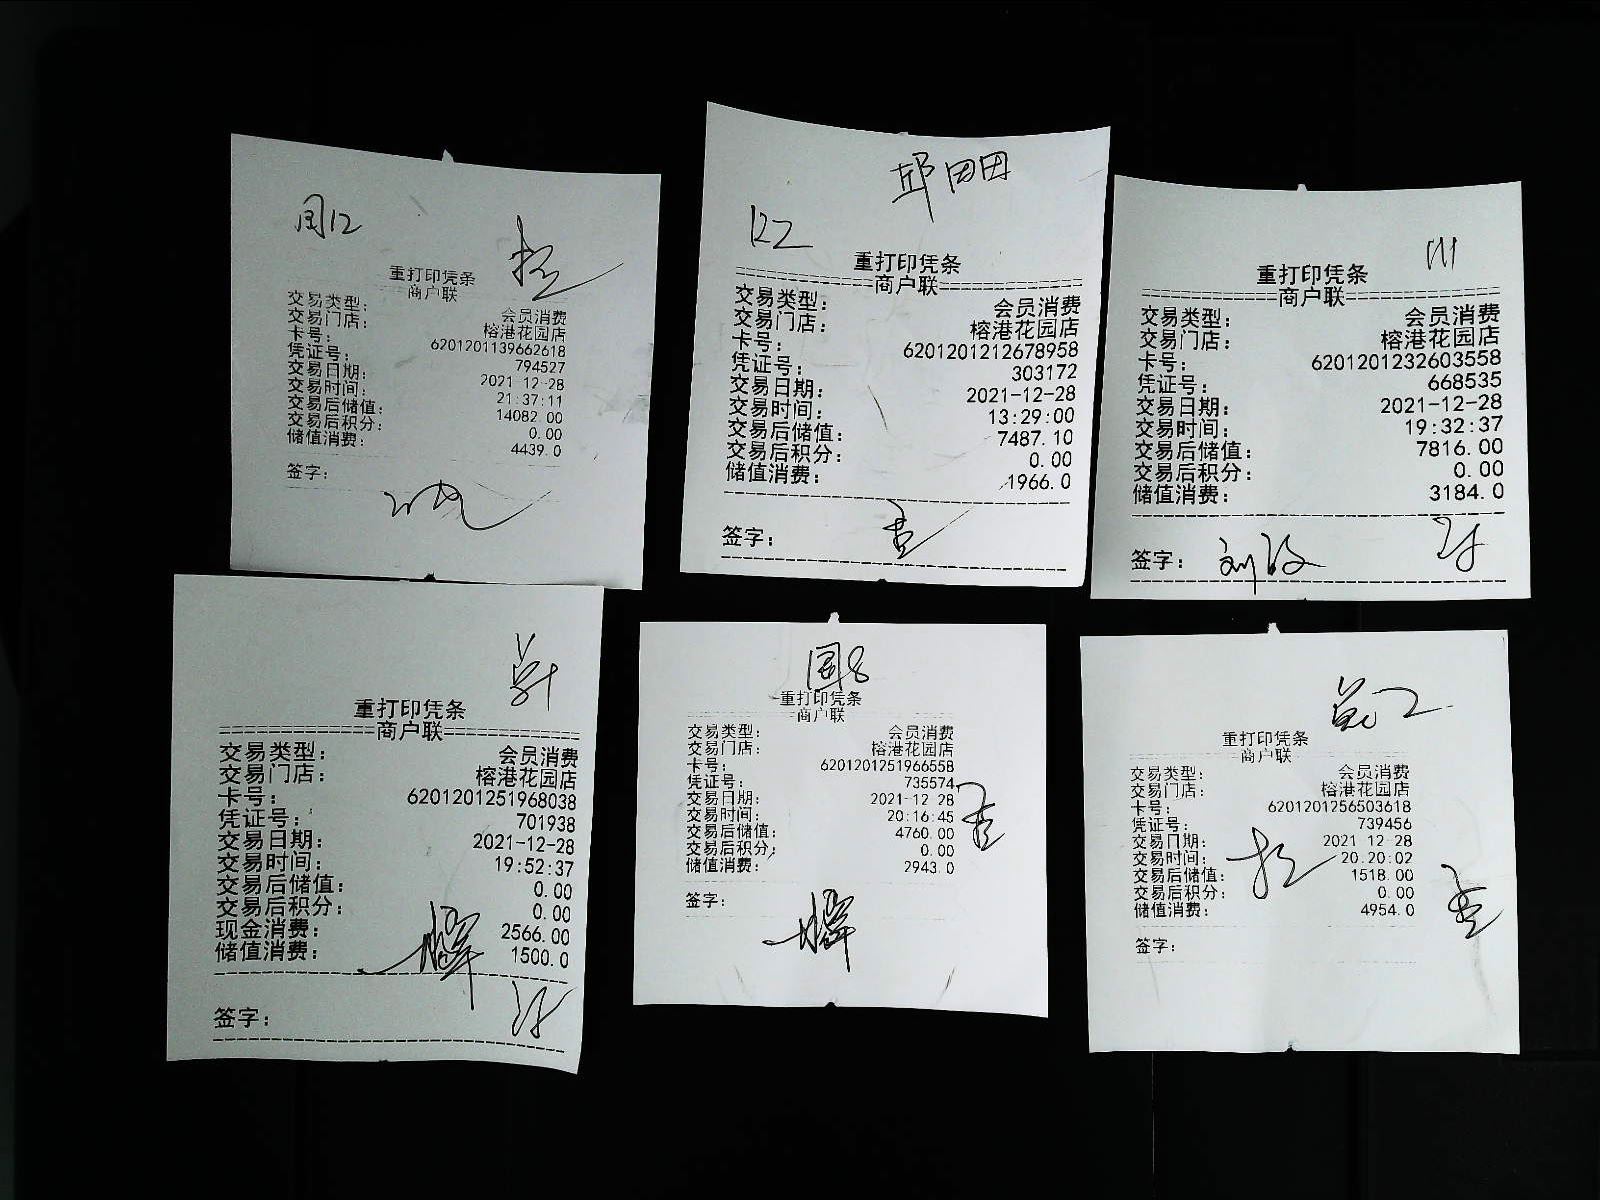 重打印凭条
商户联
交易类型: 会员消费
交易门店: 榕港花园店
卡号: 6201201139662618
凭证号: 794527
交易日期: 2021-12-28
交易时间: 21:37:11
交易后储值: 14082.00
交易后积分: 0.00
储值消费: 4439.0
签字:
邱田田
K22
重打印凭条
商户联
交易类型: 会员消费
交易门店: 榕港花园店
卡号: 6201201212678958
凭证号: 303172
交易日期: 2021-12-28
交易时间: 13:29:00
交易后储值: 7487.10
交易后积分: 0.00
储值消费: 1966.0
签字:
111
重打印凭条
商户联
交易类型: 会员消费
交易门店: 榕港花园店
卡号: 6201201232603558
凭证号: 668535
交易日期: 2021-12-28
交易时间: 19:32:37
交易后储值: 7816.00
交易后积分: 0.00
储值消费: 3184.0
签字:
重打印凭条
商户联
交易类型: 会员消费
交易门店: 榕港花园店
卡号: 6201201251968038
凭证号: 701938
交易日期: 2021-12-28
交易时间: 19:52:37
交易后储值: 0.00
交易后积分: 0.00
现金消费: 2566.00
储值消费: 1500.0
签字:
国8
重打印凭条
商户联
交易类型: 会员消费
交易门店: 榕港花园店
卡号: 6201201251966558
凭证号: 735574
交易日期: 2021-12-28
交易时间: 20:16:45
交易后储值: 4760.00
交易后积分: 0.00
储值消费: 2943.0
签字:
重打印凭条
商户联
交易类型: 会员消费
交易门店: 榕港花园店
卡号: 6201201256503618
凭证号: 739456
交易日期: 2021-12-28
交易时间: 20:20:02
交易后储值: 1518.00
交易后积分: 0.00
储值消费: 4954.0
签字: